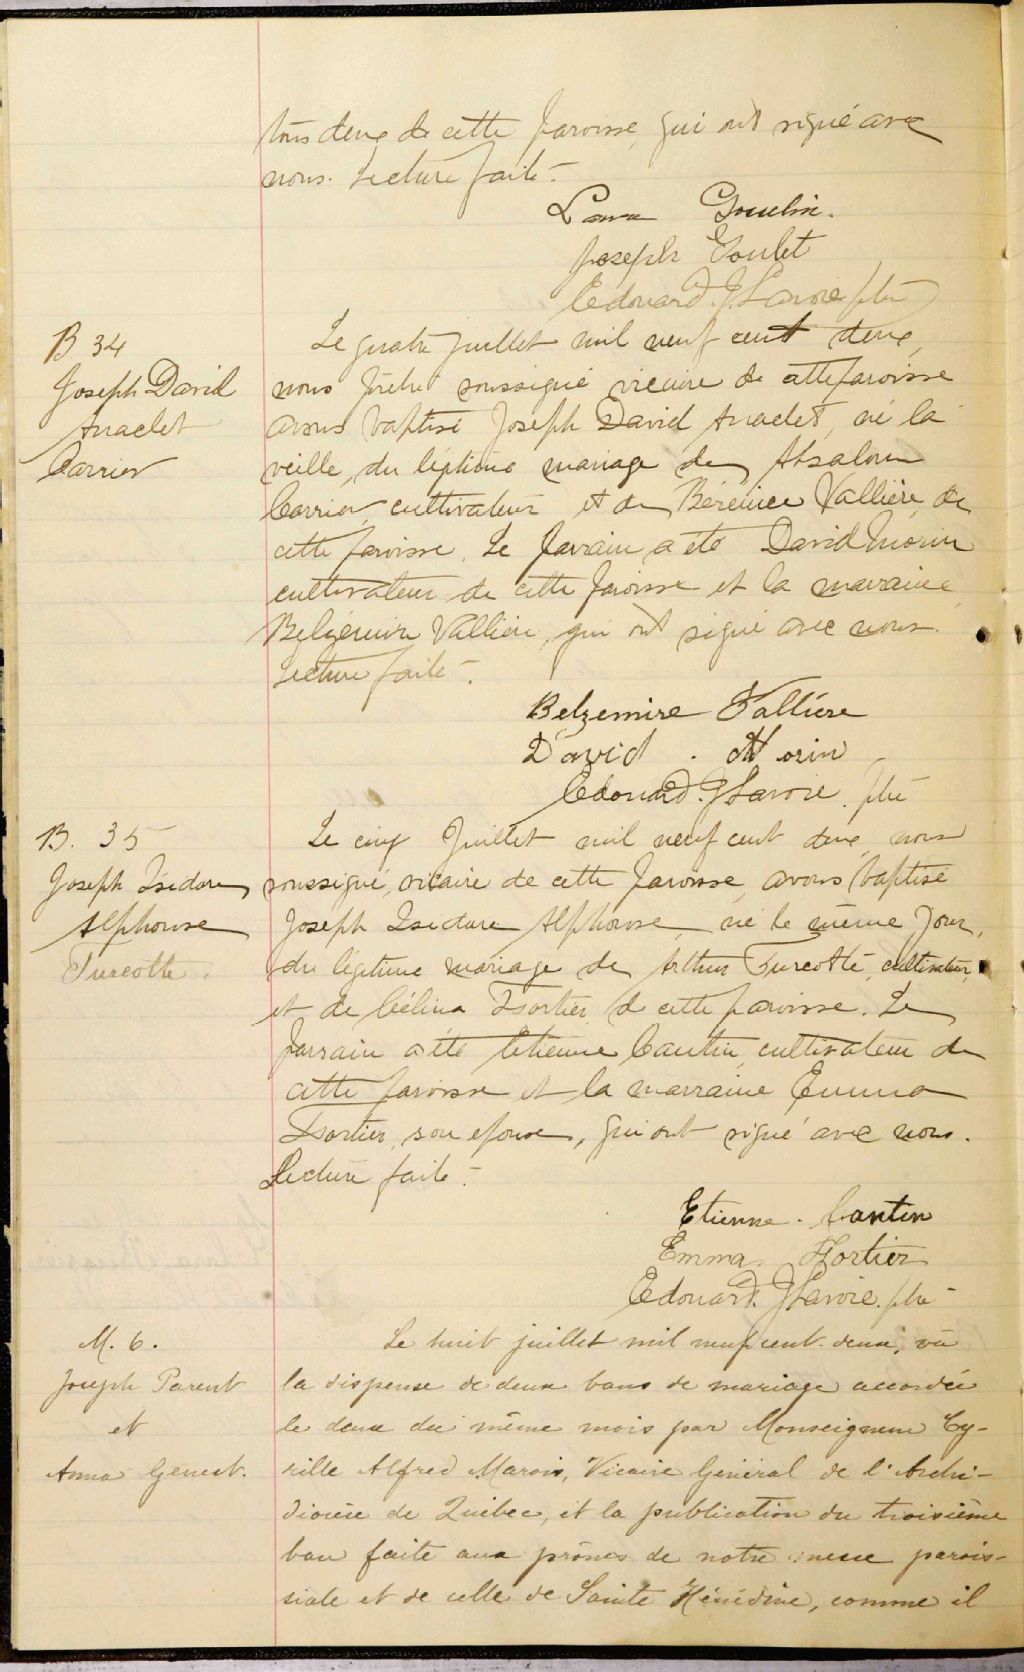 tous deux de cette paroisse, qui ont signé avec
nous. Lecture faite.
Goulin.
Joseph Goulet
Edouard J Lavoie ptre
B 34
Joseph David
Anaclet
Carrier
Le quatre juillet mil neuf cent deux,
nous prêtre soussigné vicaire de cette paroisse
avons baptisé Joseph David Anaclet, né la
veille, du légitime mariage de Absalom
Carrier cultivateur et de Bérénice Vallière, de
cette paroisse. Le parrain a été David Morin
cultivateur de cette paroisse et la marraine
Belzémire Vallière, qui ont signé avec nous.
Lecture faite.
Belzemire Vallière
David . Morin
Edouard J Lavoie. ptre
B. 35
Joseph Isidore
Alphonse
Turcotte.
Le cinq Juillet mil neuf cent deux, nous
soussigné, vicaire de cette paroisse, avons baptisé
Joseph Isidore Alphonse, né le même jour,
du légitime mariage de Arthur Turcotte, cultivateur,
et de Célina Fortier, de cette paroisse. Le
parrain a été Etienne Cantin, cultivateur de
cette paroisse et la marraine Emma
Fortier, son épouse, qui ont signé avec nous.
Lecture faite.
Etienne . Cantin
Emma Fortier
Edouard J Lavoie. ptre
M. 6.
Joseph Parent
et
Anna Genest.
Le huit juillet mil neuf cent deux, vû
la dispense de deux bans de mariage accordée
le deux du même mois par Monseigneur Cy-
rille Alfred Marois, Vicaire Général de l'Archi-
diocèse de Québec, et la publication du troisième
ban faite aux prônes de notre messe parois-
siale et de celle de Sainte Hénédine, comme il